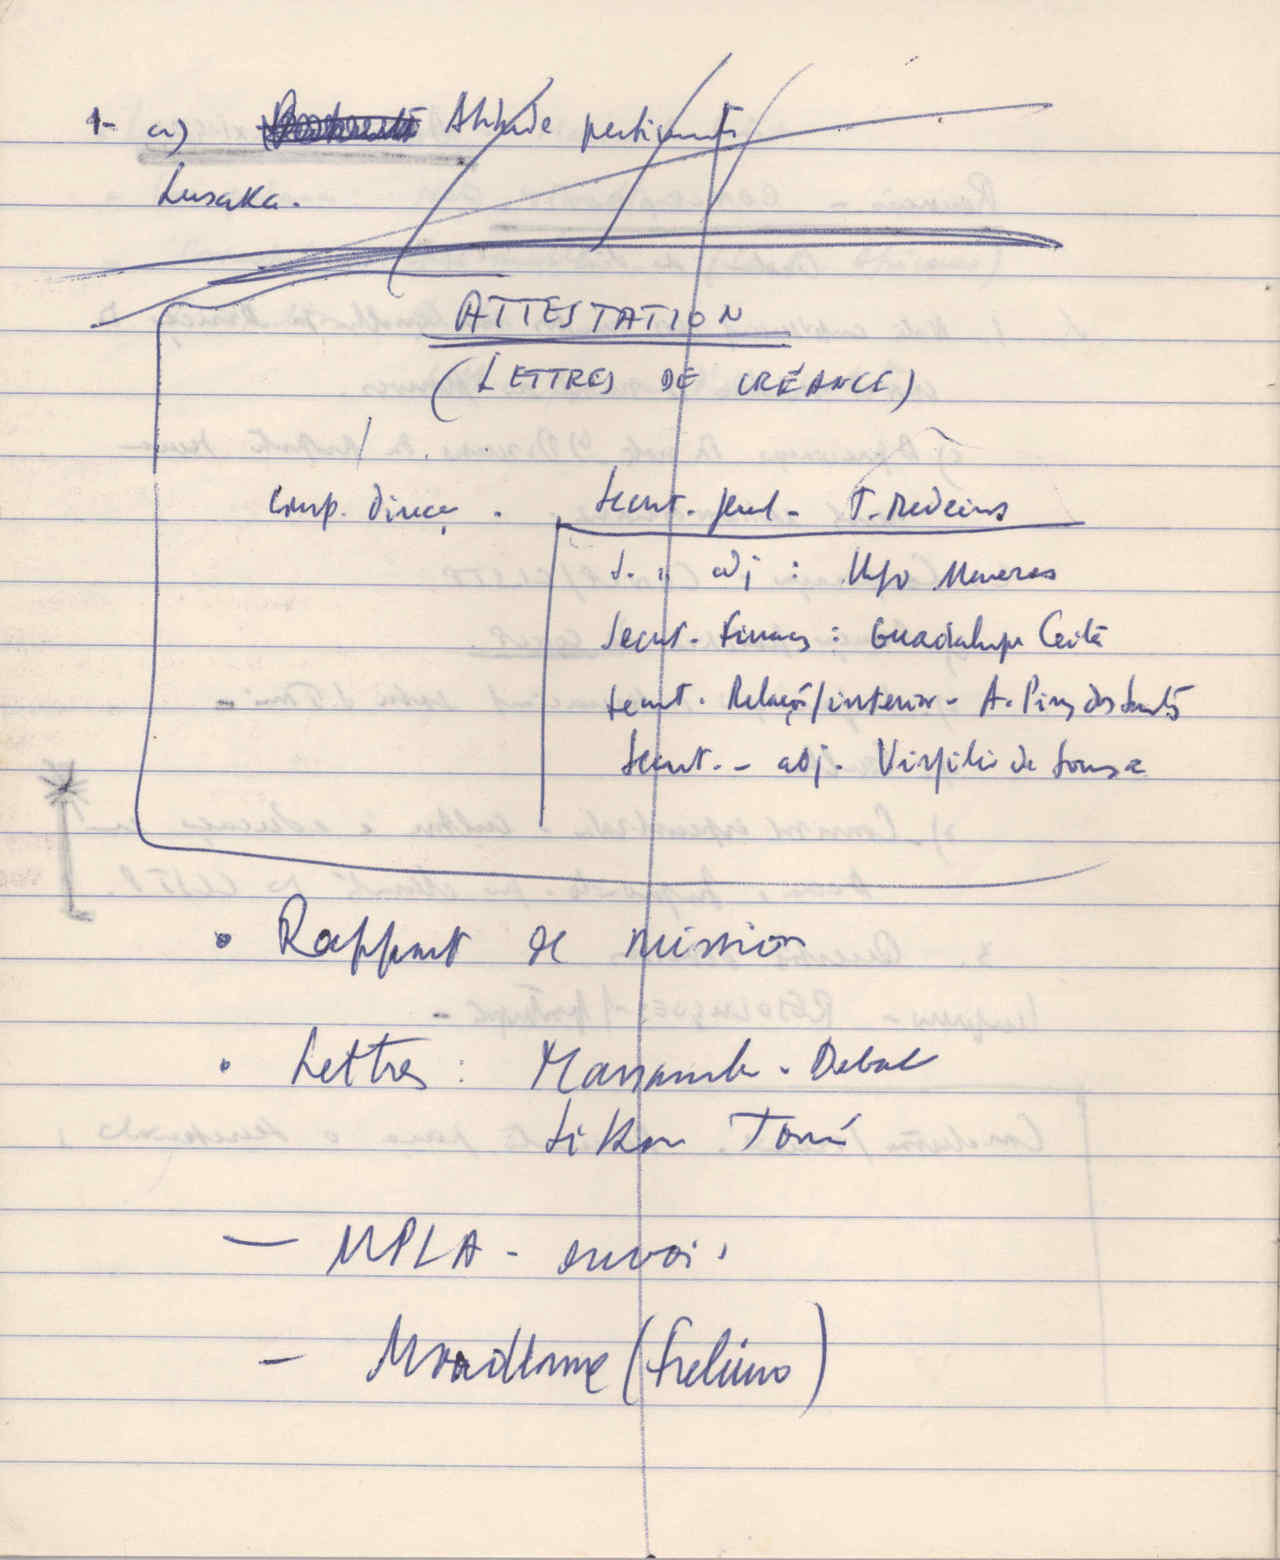 1- a) Atitude pertinente
Lusaka.
ATTESTATION
(LETTRES DE CRÉANCE)
Comp. Direcç. Secret. geral - T. Medeiros
S. " adj : Hugo Menezes
Secret. Finanças : Guadalupe Ceitã
Secret. Relaçõ/interior - A. Pires dos Santos
Secret. - adj. Virgilio de Sousa
• Rapport de mission
• Lettres : Massamba - Debat
Sékou Touré
— MPLA - envoi
— Mondlane (Frelimo)